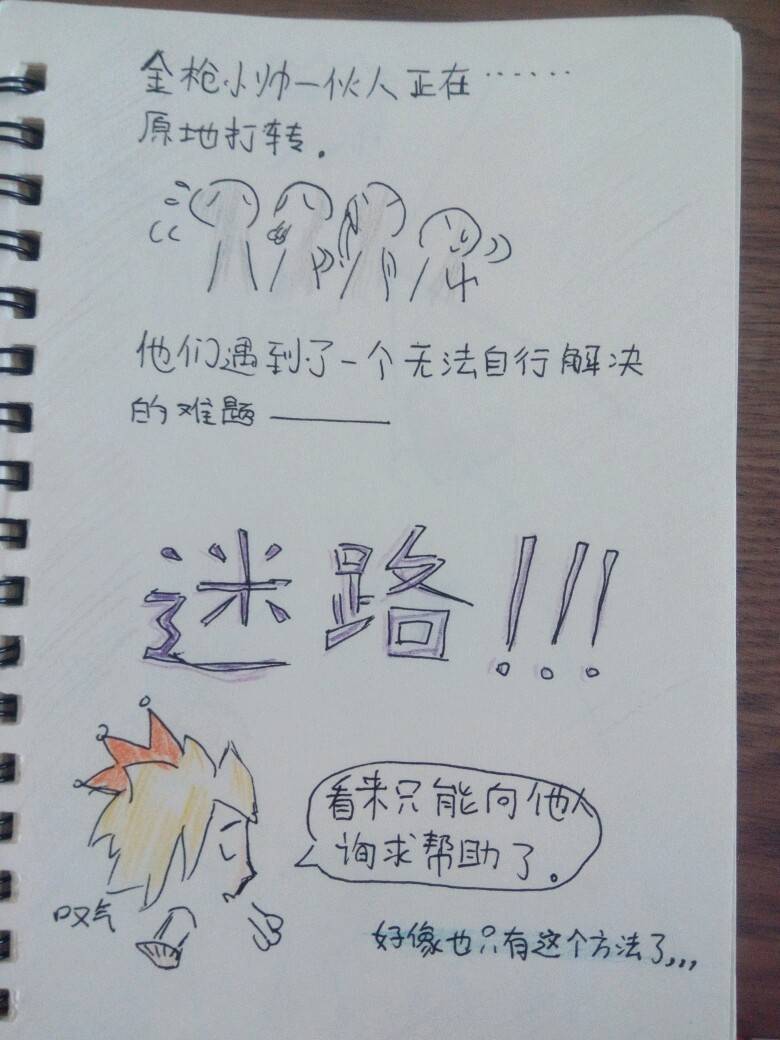 金枪小帅一伙人正在……
原地打转.
他们遇到了一个无法自行解决
的难题——
迷路!!!
看来只能向他人
询求帮助了。
叹气
好像也只有这个方法了,,,